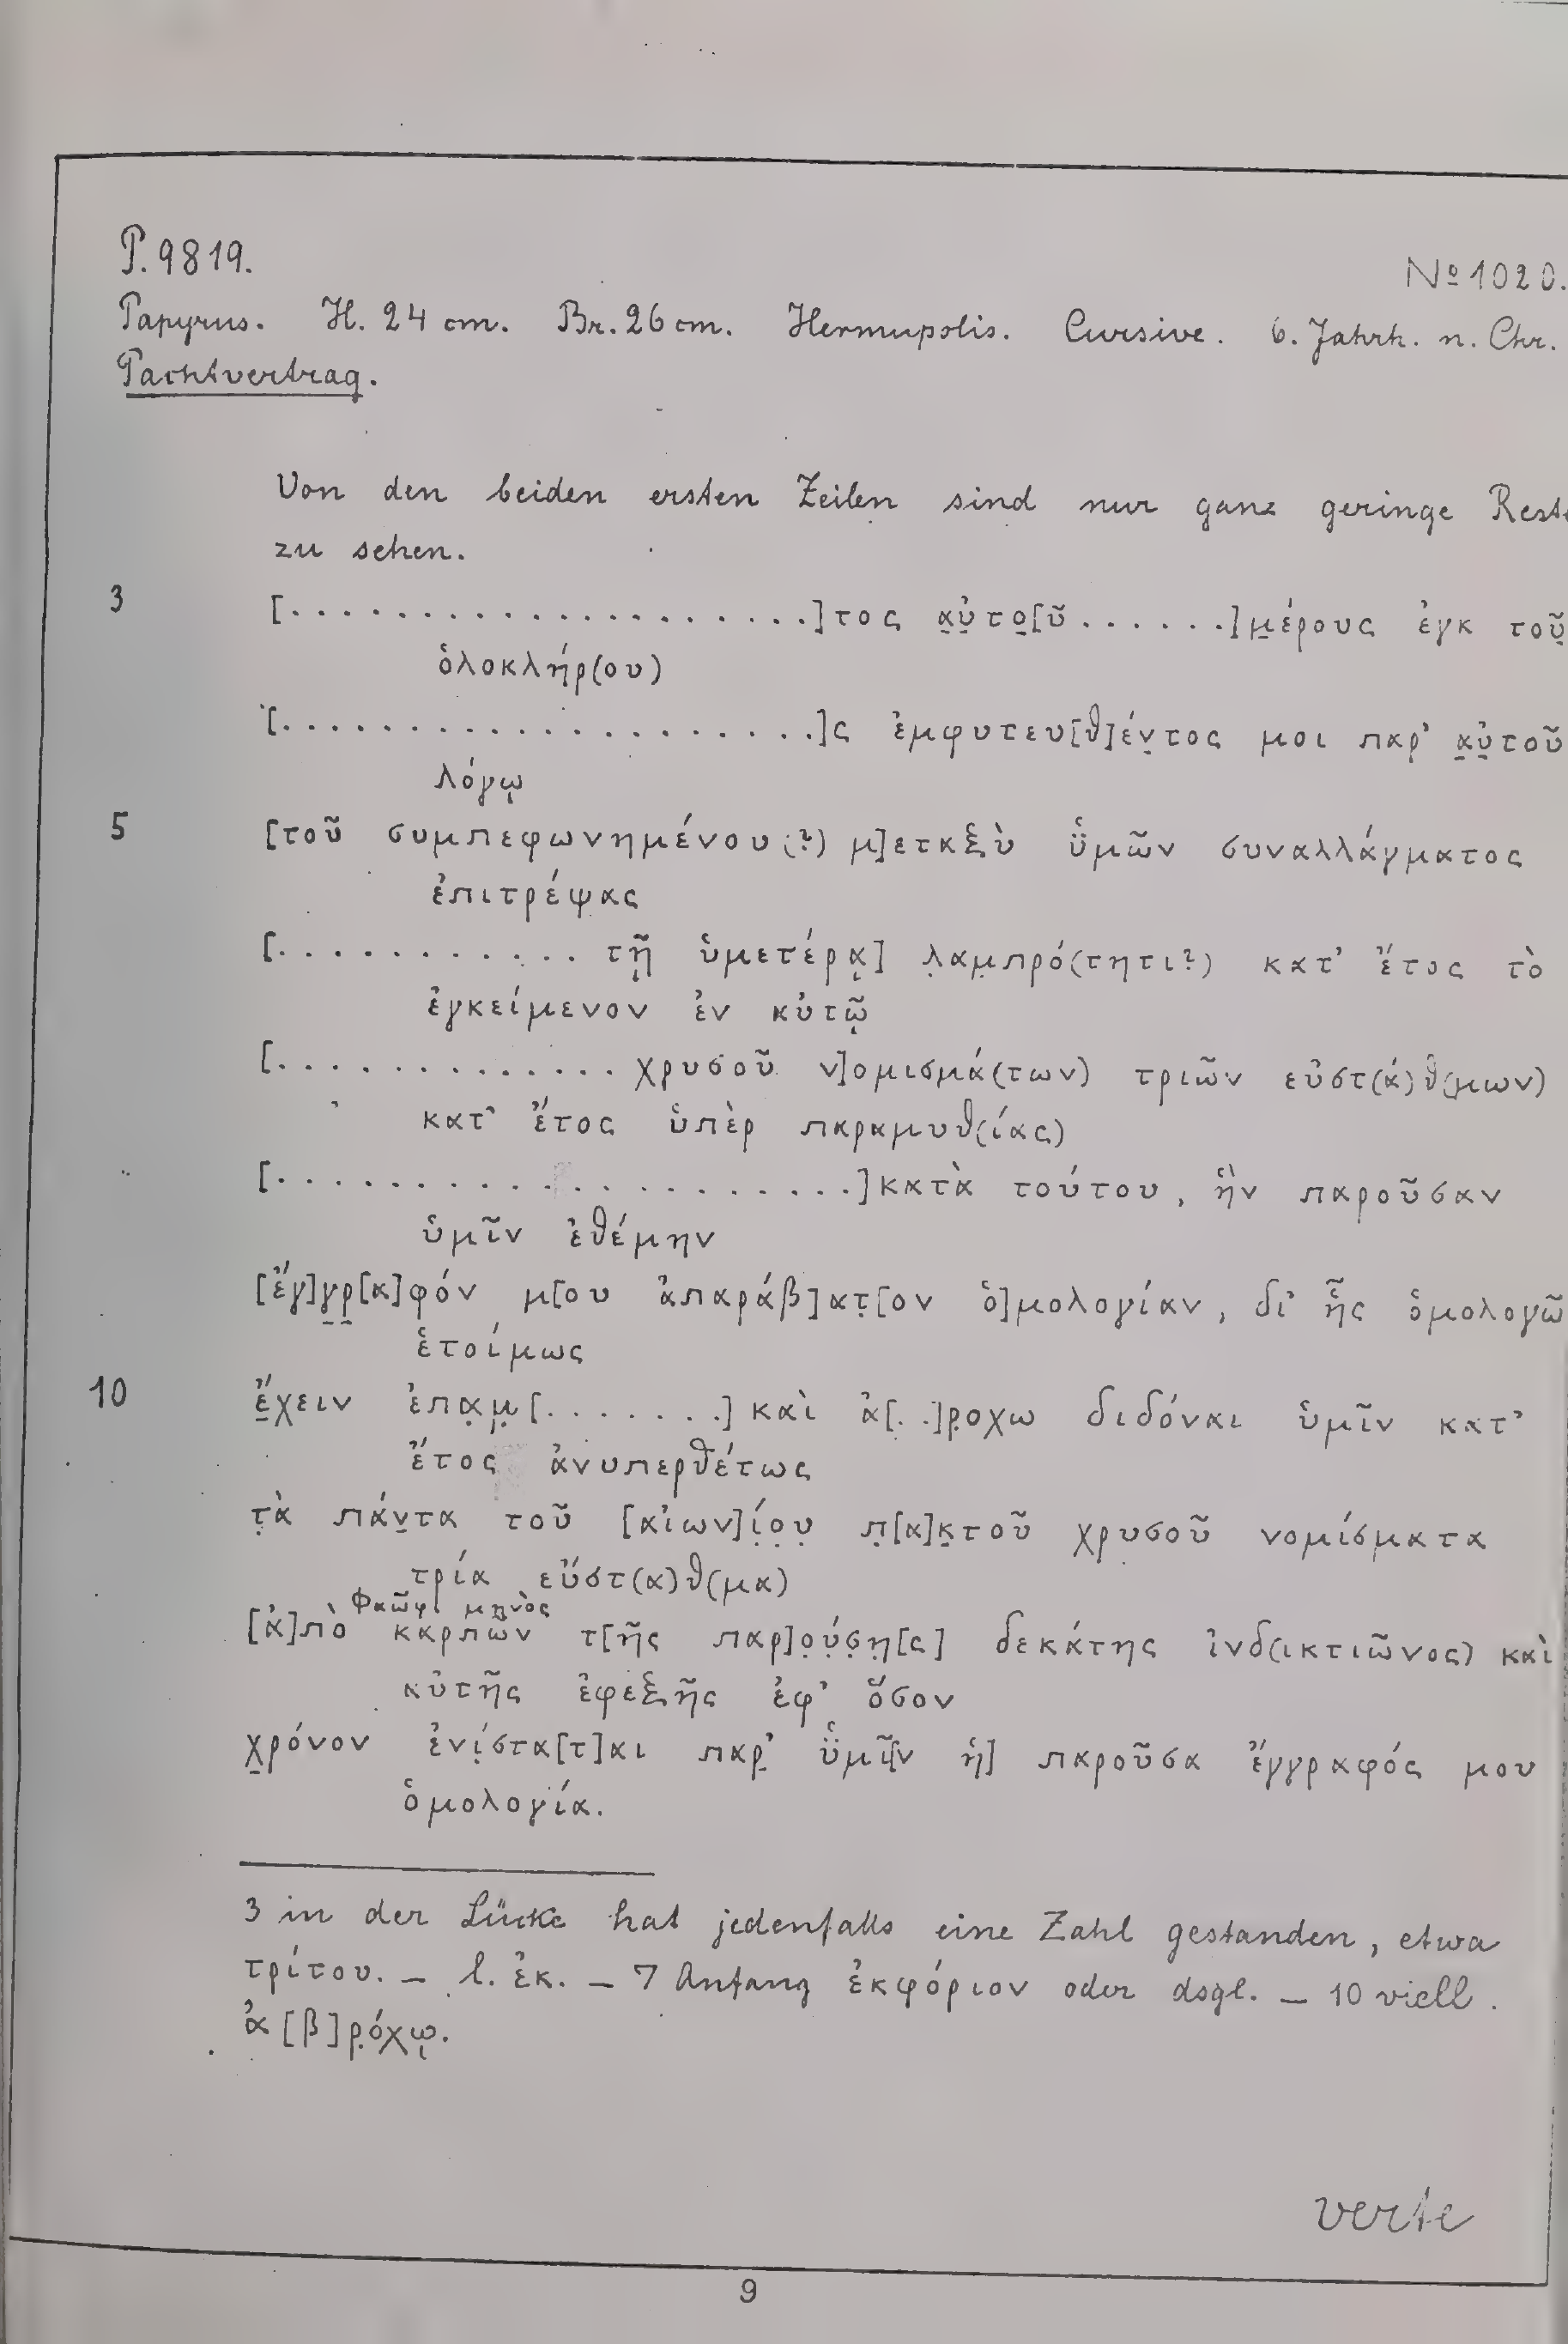 P. 9819.
No 1020.
Papyrus. H. 24 cm. Br. 26 cm. Hermupolis. Cursive. 6. Jahrh. n. Chr.
Pachtvertrag.
Von den beiden ersten Zeilen sind nur ganz geringe Reste
zu sehen.
3 [. . . . . . . . . . . . . . . . . . . .]τος α̣ὐ̣το̣[ῦ . . . . . .]μ̣έρους ἐγκ τοῦ̣
ὁλοκλήρ(ου)
[. . . . . . . . . . . . . . . . . . . .]ς ἐμφυτευ[θ]έν̣τος μοι παρ' α̣ὐ̣τοῦ
λόγῳ
5 [τοῦ συμπεφωνημένου(?) μ]εταξὺ ὑ̈μῶν συναλλάγματος
ἐπιτρέψας
[. . . . . . . . . . . τῇ ὑμετέρᾳ] λ̣αμ̣πρό(τητι?) κατ' ἔτος τὸ
ἐγκείμενον ἐν αὐτῷ
[. . . . . . . . . . . . . χρυσοῦ ν]ομισμά(των) τριῶν εὐστ(ά)θ(μων)
κατ' ἔτος ὑπὲρ παραμυθ(ίας)
[. . . . . . . . . . . . . . . . . . . . .]κατὰ τούτου, ἣν παροῦσαν
ὑμῖν ἐθέμην
[ἔγ]γ̣ρ̣[α]φόν μ[ου ἀπαράβ]ατ̣[ον ὁ]μολογίαν, δι' ἧς ὁμολογῶ
ἑτοίμως
10 ἔ̣χειν ἐπα̣μ̣[. . . . . . .] καὶ ἀ[. .]ρ̣οχω διδόναι ὑμῖν κατ'
ἔτος ἀνυπερθέτως
τ̣ὰ πάν̣τα τοῦ [αἰων]ί̣ο̣υ̣ π̣[α]κ̣τοῦ χρυσοῦ νομίσματα
τρία εὔστ(α)θ(μα)
Φαῶφι μηνὸς
[ἀ]πὸ καρπῶν τ[ῆς παρ]ο̣ύ̣σ̣η̣[ς] δεκάτης ἰνδ(ικτιῶνος) καὶ
αὐτῆς ἐφεξῆς ἐφ' ὅσον
χ̣ρόνον ἐνί̣στα[τ]αι παρ̣' ὑ̈μῖ[ν ἡ] παροῦσα ἔγγραφός μου
ὁμολογία.
3 in der Lücke hat jedenfalls eine Zahl gestanden, etwa
τρίτου. – l. ἐκ. – 7 Anfang ἐκφόριον oder dsgl. – 10 viell.
ἀ[β]ρ̣όχῳ.
verte
9